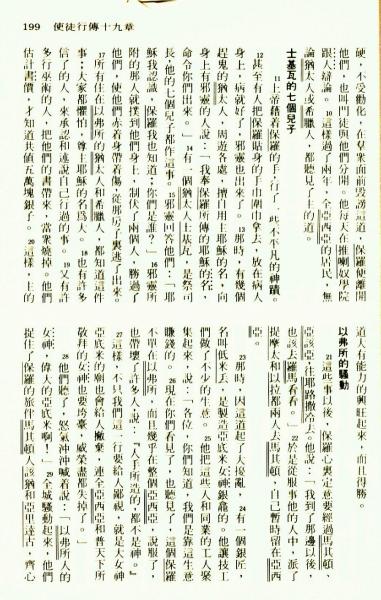 199 使徒行傳十九章
硬,不受勸化,在羣眾面前毀謗這道,保羅便離開
他們,也叫門徒與他們分開。他每天在推喇奴學院
跟人辯論。10這樣經過了兩年,全亞西亞的居民,無
論猶太人或希臘人,都聽見了主的道。
士基瓦的七個兒子
11上帝藉着保羅的手,行了一些不平凡的神蹟。
12甚至有人把保羅貼身的手巾圍巾拿去,放在病人
身上,病就好了,邪靈也出來了。13那時,有幾個
趕鬼的猶太人,周遊各處,擅自用主耶穌的名,向
身上有邪靈的人說:「我奉保羅所傳的耶穌的名,
命令你們出來!」14有一個猶太人士基瓦,是祭司
長,他的七個兒子都作這事。15邪靈回答他們:「耶
穌我認識,保羅我也知道;你們是誰?」16邪靈所
附的那人就撲到他們身上,制伏了兩個人,勝過了
他們,使他們赤着身帶着傷,從那房子裏逃了出來。
17所有住在以弗所的猶太人和希臘人,都知道這件
事;大家都懼怕,尊主耶穌的名為大。18也有許多
信了的人,來承認和述說自己行過的事。19又有許
多行巫術的人,把他們的書帶來,當衆燒掉。他們
估計書價,才知道共值五萬塊銀子。20這樣,主的
道大有能力的興旺起來,而且得勝。
以弗所的騷動
21這些事以後,保羅心裏定意要經過馬其頓、
亞該亞,往耶路撒冷去。他說:「我到了那邊以後,
也該去羅馬看看。」22於是從服事他的人中,派了
提摩太和以拉都兩人去馬其頓,自己暫時留在亞西
亞。
23那時,因這道起了大擾亂,24有一個銀匠,
名叫低米丟,是製造亞底米女神銀龕的。他讓技工
們做了不少的生意。25他把這些人和同業的工人聚
集起來,說:「各位,你們知道,我們是靠這生意
賺錢的。26現在你們看見了,也聽見了,這個保羅
不單在以弗所,而且幾乎在整個亞西亞,說服了,
也帶壞了許多人,說:『人手所造的,都不是神。』
27這樣,不只我們這一行要給人鄙視,就是大女神
亞底米的廟也會給人撇棄,連全亞西亞和普天下所
敬拜的女神也要垮臺,威榮盡都失掉了。」
28他們聽了,怒氣沖沖喊着說:「以弗所人的
女神,偉大的亞底米啊!」29全城騷動起來,他們
捉住了保羅的旅伴馬其頓人該猶和亞里達古,齊心